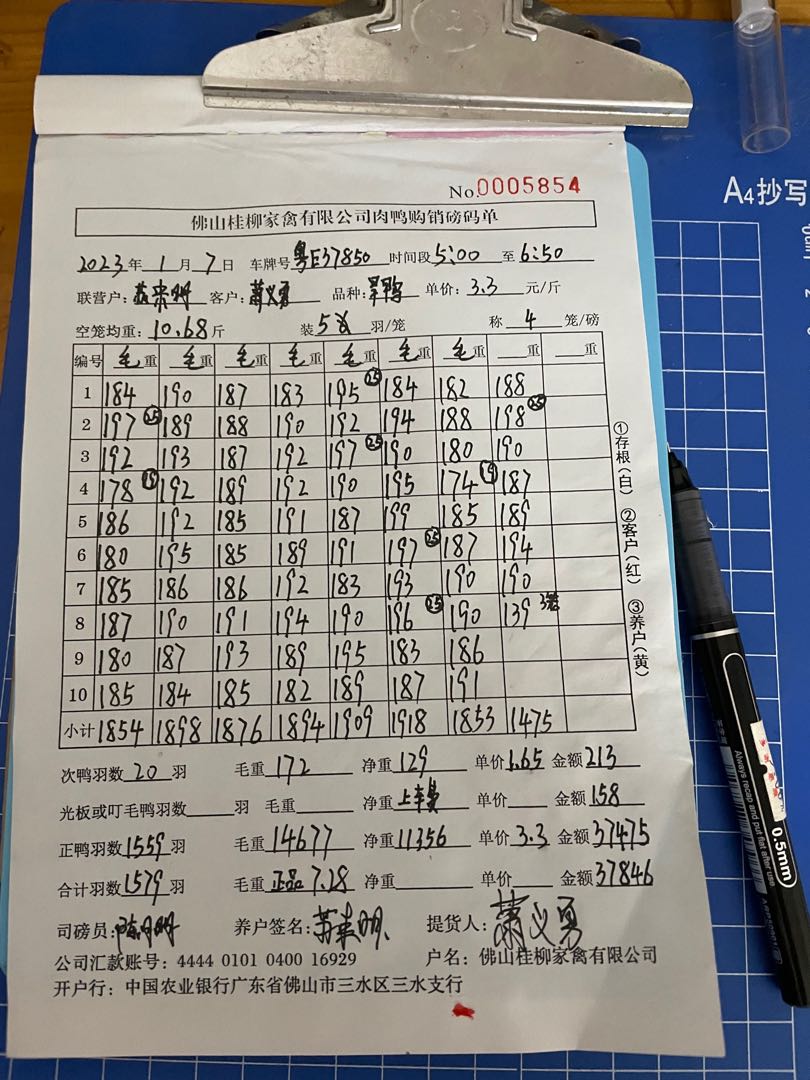 No.0005854
佛山桂柳家禽有限公司肉鸭购销磅码单
A4抄写
2023年1月7日 车牌号粤E37850 时间段5:00至6:50
联营户: 客户:萧义勇 品种: 单价:3.3元/斤
空笼均重:10.68斤 装5 羽/笼 称4笼/磅
编号 毛重 毛重 毛重 毛重 毛重 毛重 毛重 重 重
1 184 190 187 183 195 25 184 182 188
2 197 25 189 188 190 192 194 188 198 25
3 192 193 187 192 197 25 190 180 190
4 178 19 192 189 192 190 195 174 19 187
5 186 192 185 191 187 199 185 189
6 180 195 185 189 191 197 25 187 194
7 185 186 186 192 183 193 190 190
8 187 190 191 194 190 196 25 190 139 3笼
9 180 187 193 189 195 183 186
10 185 184 185 182 189 187 191
小计 1854 1898 1876 1894 1909 1918 1853 1475
①存根(白) ②客户(红) ③养户(黄)
次鸭羽数20羽 毛重172 净重129 单价1.65 金额213
光板或叮毛鸭羽数 羽 毛重 净重上车费 单价 金额158
正鸭羽数1559羽 毛重14677 净重11356 单价3.3 金额37475
合计羽数1579羽 毛重正品7.28 净重 单价 金额37846
司磅员: 养户签名: 提货人:萧义勇
公司汇款账号:4444 0101 0400 16929 户名:佛山桂柳家禽有限公司
开户行:中国农业银行广东省佛山市三水区三水支行
Always recap and put flat after use
0.5mm